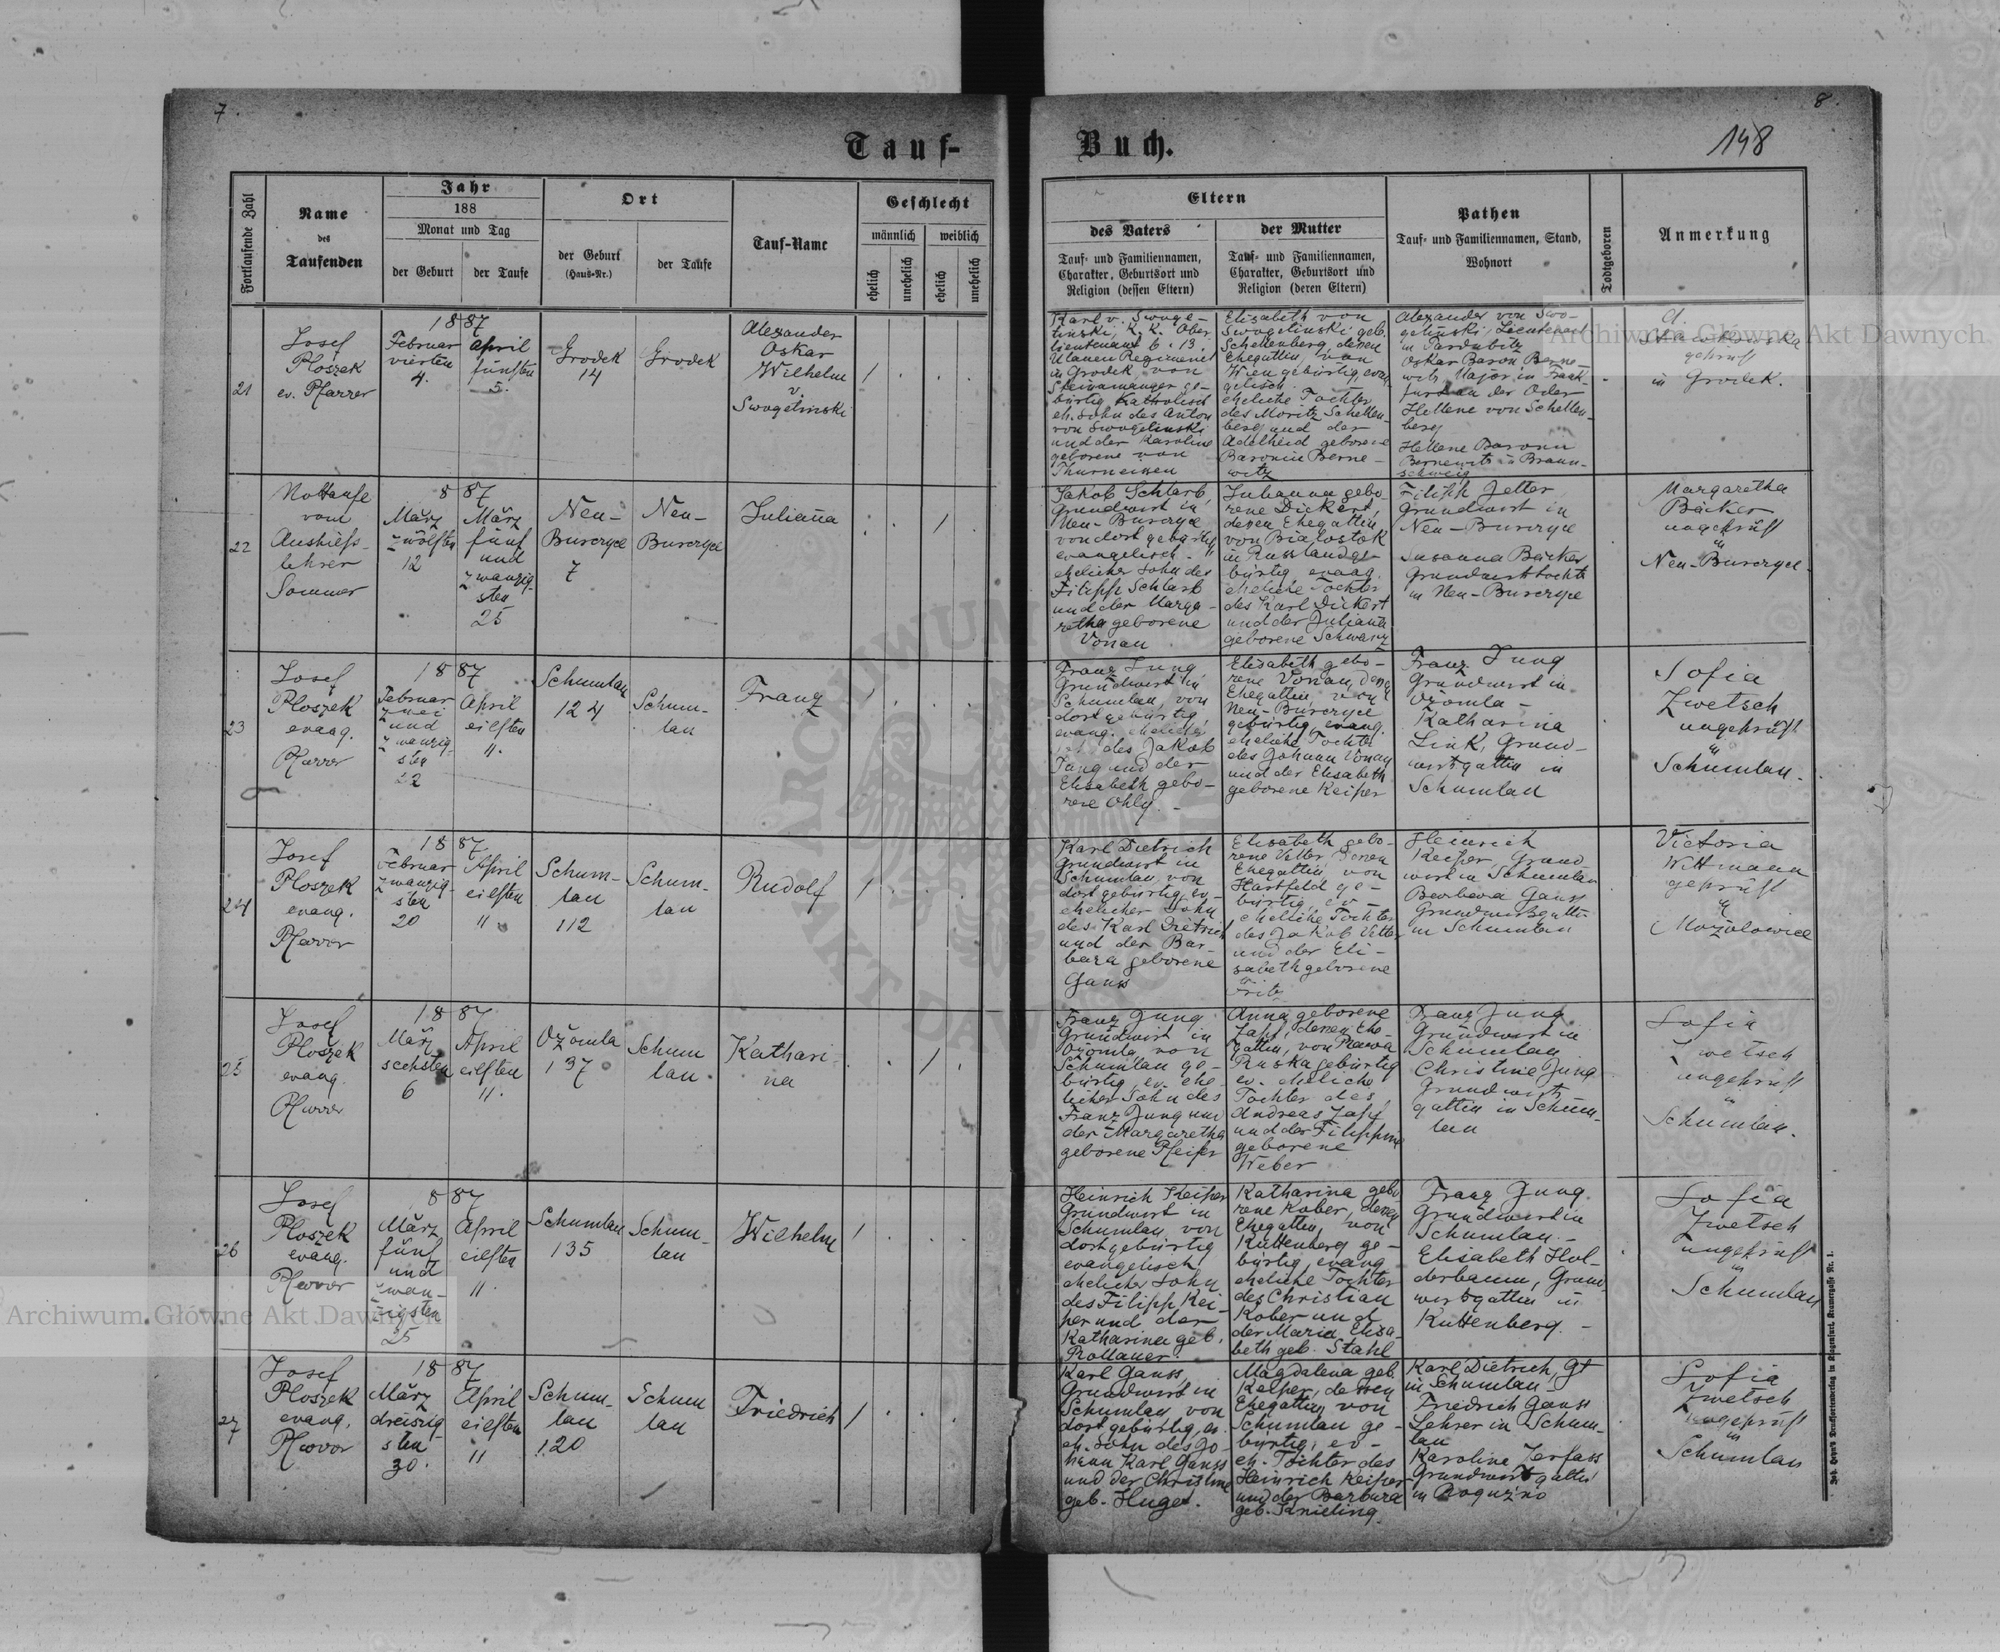 7.
8.
148
Tauf-
Buch.
Fortlaufende Zahl
Name
des
Taufenden
Jahr
188
Monat und Tag
der Geburt
der Taufe
Ort
der Geburt
(Haus-Nr.)
der Taufe
Tauf-Name
Geschlecht
männlich
weiblich
ehelich
unehelich
ehelich
unehelich
Eltern
des Vaters
Tauf- und Familiennamen,
Charakter, Geburtsort und
Religion (dessen Eltern)
der Mutter
Tauf- und Familiennamen,
Charakter, Geburtsort und
Religion (deren Eltern)
Pathen
Tauf- und Familiennamen, Stand,
Wohnort
Todtgeboren
Anmerkung
21
Josef
Ploszek
ev. Pfarrer
1887
Februar
vierten
4.
April
fünften
5.
Grodek
14
Grodek
Alexander
Oskar
Wilhelm
v.
Swogetinski
Karl v. Swoge-
tinski, K. K. Ober
lieutenant 6. 13.
Ulanen Regiment
in Grodek von
Steinamanger ge-
bürtig Katholisch
eh. Sohn des Anton
von Swogetinski
und der Karoline
geborene von
Thurneisen
Elisabeth von
Swogetinski geb.
Schellenberg, deren
Ehegattin, von
Wien gebürtig, evan
gelisch.
eheliche Tochter
des Moritz Schellen
berg und der
Adelheid geborene
Baronin Berne-
witz
Alexander von Swo-
getinski, Lieutenant
in Pardubitz
Oskar Baron Berne-
witz, Major in Frank-
furt an der Oder
Hellene von Schellen-
berg
Hellene Baronin
Bernewitz in Braun-
schweig
geprüft
in Grodek.
22
Nottaufe
vom
Aushilfs-
lehrer
Sommer
1887
März
zwölften
12
März
fünf
und
zwanzig-
sten
25
Neu-
Burczyce
7
Neu-
Burczyce
Juliana
Jakob Schlarb,
Grundwirt in
Neu-Burczyce
von dort gebürtig
evangelisch.
ehelicher Sohn des
Filipp Schlarb
und der Marga-
retha geborene
Vonau
Julianna gebo-
rene Dickert,
deren Ehegattin,
von Białostok
in Russland ge-
bürtig, evang.
eheliche Tochter
des Karl Dickert
und der Juliana
geborene Schwarz
Filipp Jetter
Grundwirt in
Neu-Burczyce
Susanna Bäcker
Grundwirtstochter
in Neu-Burczyce
Margaretha
Bäcker
ungeprüft
in
Neu-Burczyce.
23
Josef
Ploszek
evang.
Pfarrer
1887
Februar
zwei
und
zwanzig-
sten
22
April
eilften
11.
Schumlau
124
Schum-
lau
Franz
Franz Jung
Grundwirt in
Schumlau, von
dort gebürtig,
evang. ehelicher
des Jakob
Jung und der
Elisabeth gebo-
rene Ohly.
Elisabeth gebo-
rene Vonau, deren
Ehegattin, von
Neu-Burczyce
gebürtig, evang.
eheliche Tochter
des Johann Vonau
und der Elisabeth
geborene Keiper
Franz Jung
Grundwirt in
Ożomla-
Katharina
Link, Grund-
wirtsgattin in
Schumlau
Sofia
Zwetsch
ungeprüft
in
Schumlau.
24
Josef
Ploszek
evang.
Pfarrer
1887
Februar
zwanzig-
sten
20
April
eilften
11
Schum-
lau
112
Schum-
lau
Rudolf
Karl Dietrich
Grundwirt in
Schumlau, von
dort gebürtig, ev.
ehelicher Sohn
des Karl Dietrich
und der Bar-
bara geborene
Gauss
Elisabeth gebo-
rene Vetter, deren
Ehegattin von
Hartfeld ge-
bürtig, ev-
eheliche Tochter
des Jakob Vetter
und der Eli-
sabeth geborene
Fritz
Heinrich
Keiper, Grund-
wirt in Schumlau
Barbara Gauss
Grundwirtsgattin
in Schumlau
Victoria
Wittmann
geprüft
in
Mozolowice
25
Josef
Ploszek
evang.
Pfarrer
1887
März
sechsten
6
April
eilften
11.
Ożomla
137
Schum
lau
Kathari-
na
Franz Jung
Grundwirt in
Ożomla, von
Schumlau ge-
bürtig, ev. ehe-
licher Sohn des
Franz Jung und
der Margaretha
geborene Pfeifer
Anna geborene
deren Ehe-
gattin, von Rawa
Ruska gebürtig
ev. eheliche
Tochter des
Andreas
und der Filippine
geborene
Weber
Franz Jung
Grundwirt in
Schumlau
Christine Jung
Grundwirts
gattin in Schum-
lau
Sofia
Zwetsch
ungeprüft
in
Schumlau.
26
Josef
Ploszek
evang.
Pfarrer
1887
März
fünf
und
zwan-
zigsten
25
April
eilften
11.
Schumlau
135
Schum-
lau
Wilhelm
Heinrich Keiper
Grundwirt in
Schumlau, von
dort gebürtig
evangelisch
ehelicher Sohn
des Filipp Kei-
per und der
Katharina geb.
Rollauer.
Katharina gebo
rene Kober, deren
Ehegattin, von
Kuttenberg ge-
bürtig, evang
eheliche Tochter
des Christian
Kober und
der Maria Elisa-
beth geb. Stahl
Franz Jung.
Grundwirt in
Schumlau.-
Elisabeth Hol-
derbaum, Grund
wirtsgattin in
Kuttenberg.-
Sofia
Zwetsch
ungeprüft
in
Schumlau
27
Josef
Ploszek
evang.
Pfarrer
1887
März
dreiszig-
sten
30.
April
eilften
11
Schum-
lau
120
Schum
lau
Friedrich
Karl Gauss,
Grundwirt in
Schumlau von
dort gebürtig, ev.
eh. Sohn des Jo-
hann Karl Gauss
und der Christine
geb. Huget.
Magdalena geb.
Keiper, dessen
Ehegattin von
Schumlau ge-
bürtig, ev-
eh. Tochter des
Heinrich Keiper
und der Barbara
geb. Knieling.
Karl Dietrich, Gt
in Schumlau-
Friedrich Gauss
Lehrer in Schum-
lau
Karoline Zerfass
Grundwirtsgattin
in Roguźno
Sofia
Zwetsch
ungeprüft
in
Schumlau
Archiwum Główne Akt Dawnych
Archiwum Główne Akt Dawnych